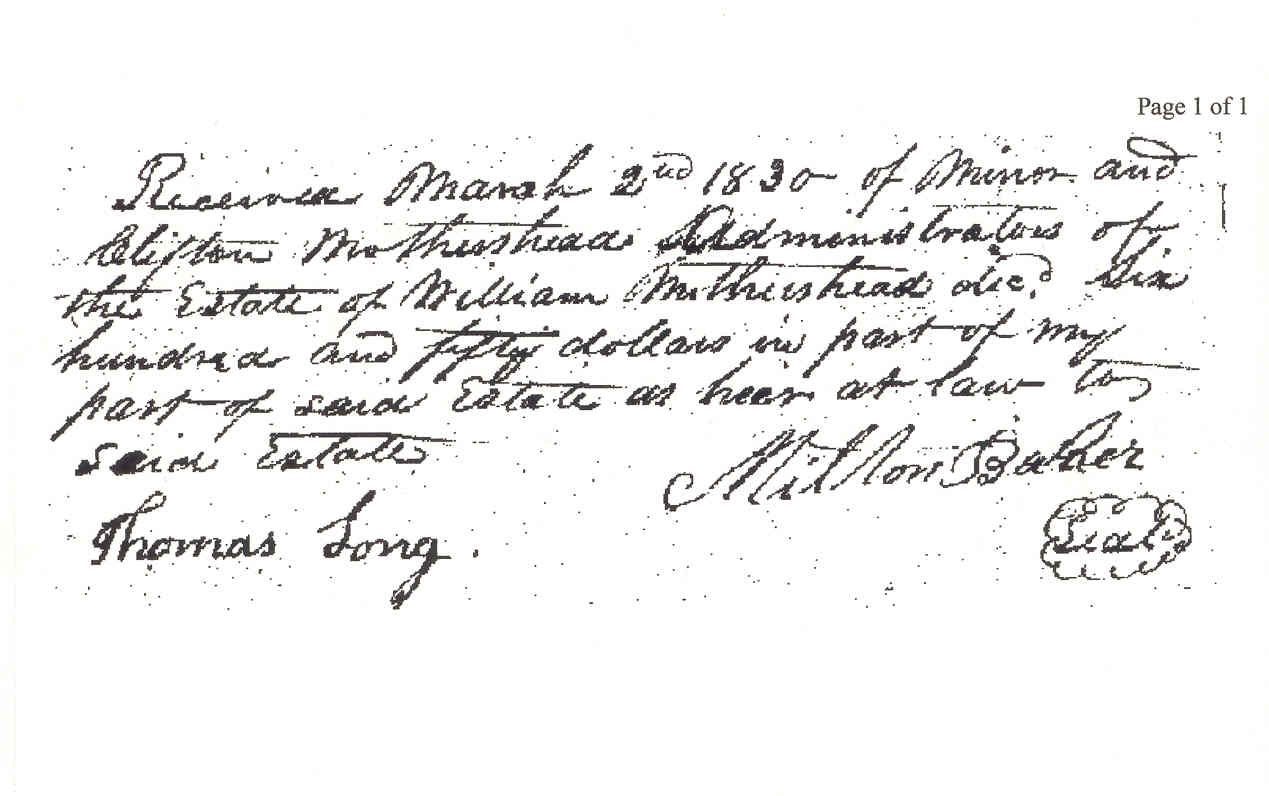 Page 1 of 1
Received March 2nd 1830 of Minor and
Clifton Mothershead Administrators of
the Estate of William Mothershead decd. Six
hundred and fifty dollars in part of my
part of said Estate as heer at law to
said Estate
Milton Baker
Thomas Long.
Seal